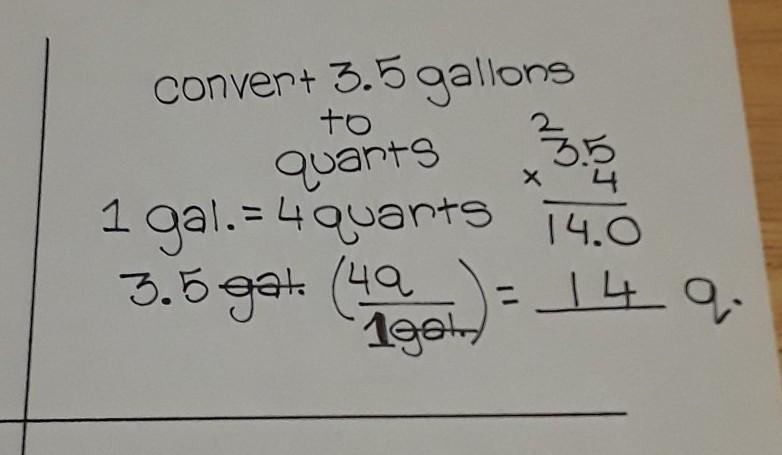 convert 3.5 gallons
to
quants
1 gal. = 4 quants
2
3.5
x 4
14.0
3.5 gal. (4q/1gal.) = 14 q.